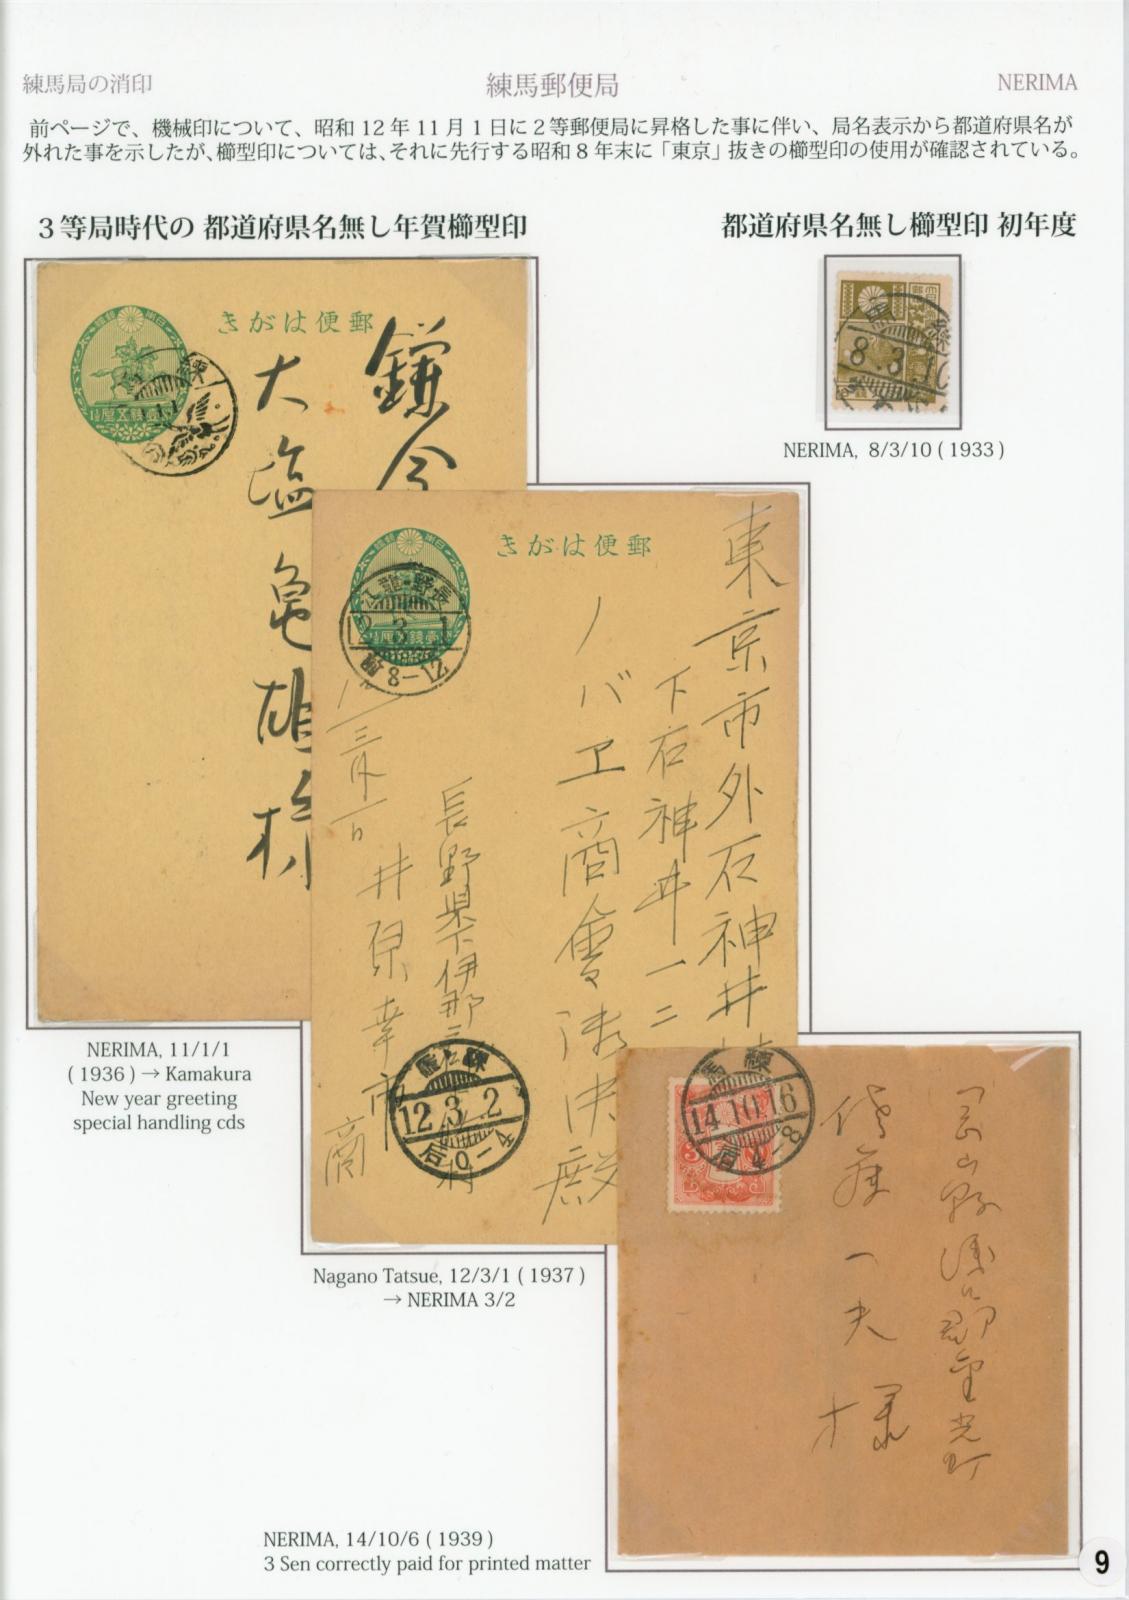 練馬局の消印
練馬郵便局
NERIMA
前ページで、機械印について、昭和12年11月1日に2等郵便局に昇格した事に伴い、局名表示から都道府県名が
外れた事を示したが、櫛型印については、それに先行する昭和8年末に「東京」抜きの櫛型印の使用が確認されている。
3等局時代の 都道府県名無し年賀櫛型印
都道府県名無し櫛型印 初年度
8.3.10
NERIMA, 8/3/10 ( 1933 )
きがは便郵
鎌倉
大塩亀雄様
練
1.1
NERIMA, 11/1/1
( 1936 ) → Kamakura
New year greeting
special handling cds
きがは便郵
江龍・野長
12 3 1
前8-12
東京市外石神井
下石神井一二
ノバヱ商會
殿
三月一日
長野県下伊那
井原幸市
商
馬練
12 3 2
后0-4
Nagano Tatsue, 12/3/1 ( 1937 )
→ NERIMA 3/2
馬練
14.10.16
后4-8
岡山縣浅口郡金光町
一夫様
NERIMA, 14/10/6 ( 1939 )
3 Sen correctly paid for printed matter
9